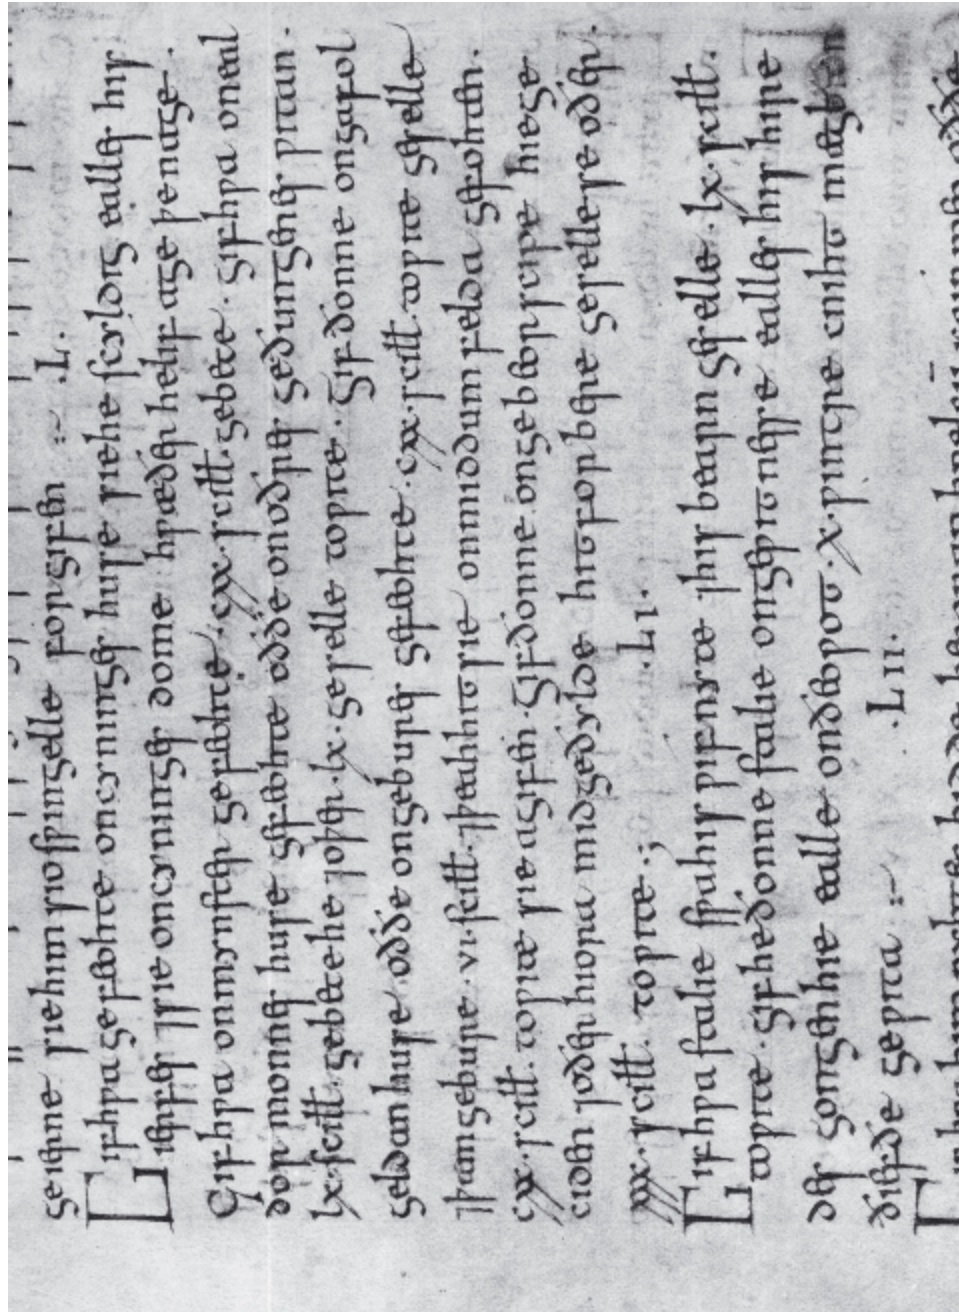 geierne sie him sio swingelle forgifen :~ .L.
Gif hwa gefeohte on cyninges huse sie he scyldig ealles his
ierfes ⁊ sie on cyninges dome hwæðer he lif age þe nage.
Gif hwa on mynster gefeohte .cxx. scill. gebete. gif hwa on eal
dor monnes huse gefeohte oððe on oðres geðungenes witan.
lx. scill. gebete he ⁊ oþer .lx. geselle to wite. Gif ðonne on gafol
geldan huse oððe on gebures gefeohte .cxx. scill. to wite geselle
⁊ þam gebure .vi. scill. ⁊ þeah hit sie on middum felda gefohten.
cxx. scill. to wite sie agifen. Gif ðonne on gebeorscipe hie ge
ciden ⁊ oðer hiora mid geðylde hit forbere geselle se oðer
.xxx. scill. to wite .; .LI.
Gif hwa stalie swa his wif nyte ⁊ his bearn geselle .lx. scill.
to wite. gif he ðonne stalie on gewitnesse ealles his hire
des gongen hie ealle on ðeowot. x. wintre cniht mæg bion
ðiefðe gewita :~ .LII.